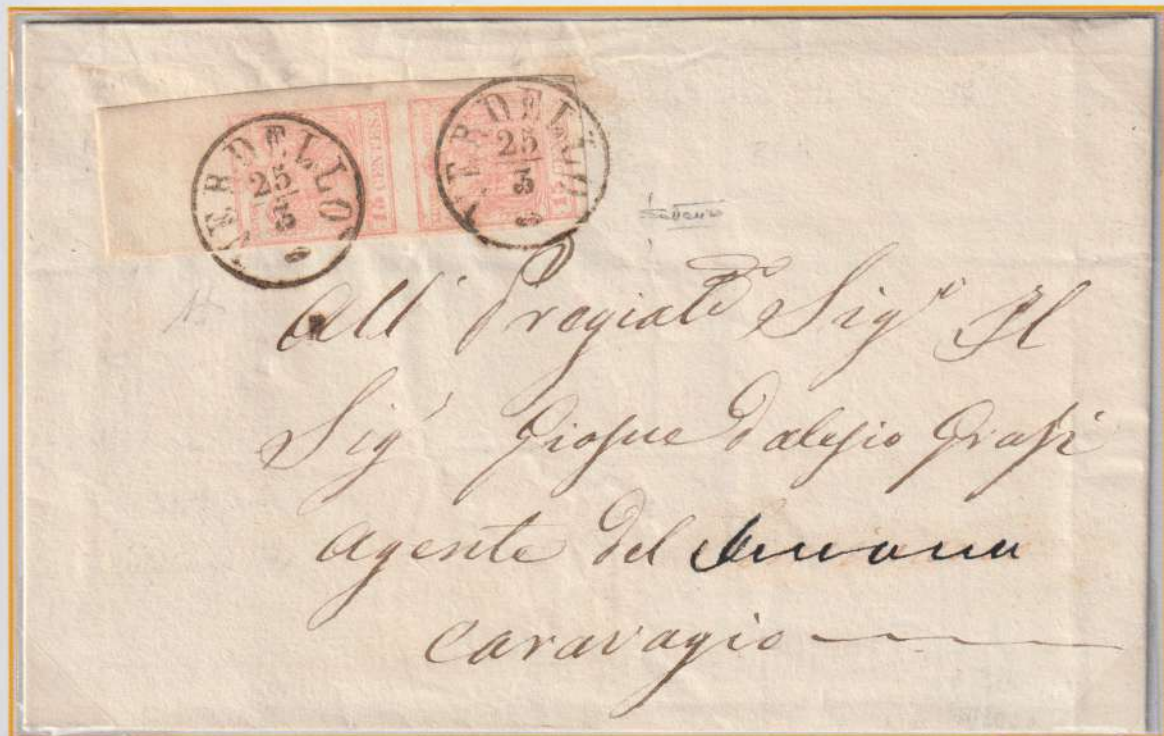 VERDELLO
25
3
VERDELLO
25
3
15 CENTES
15
All' Pregiat Sig Il
Sig Giosue Dalesio Grassi
agente del
Caravagio